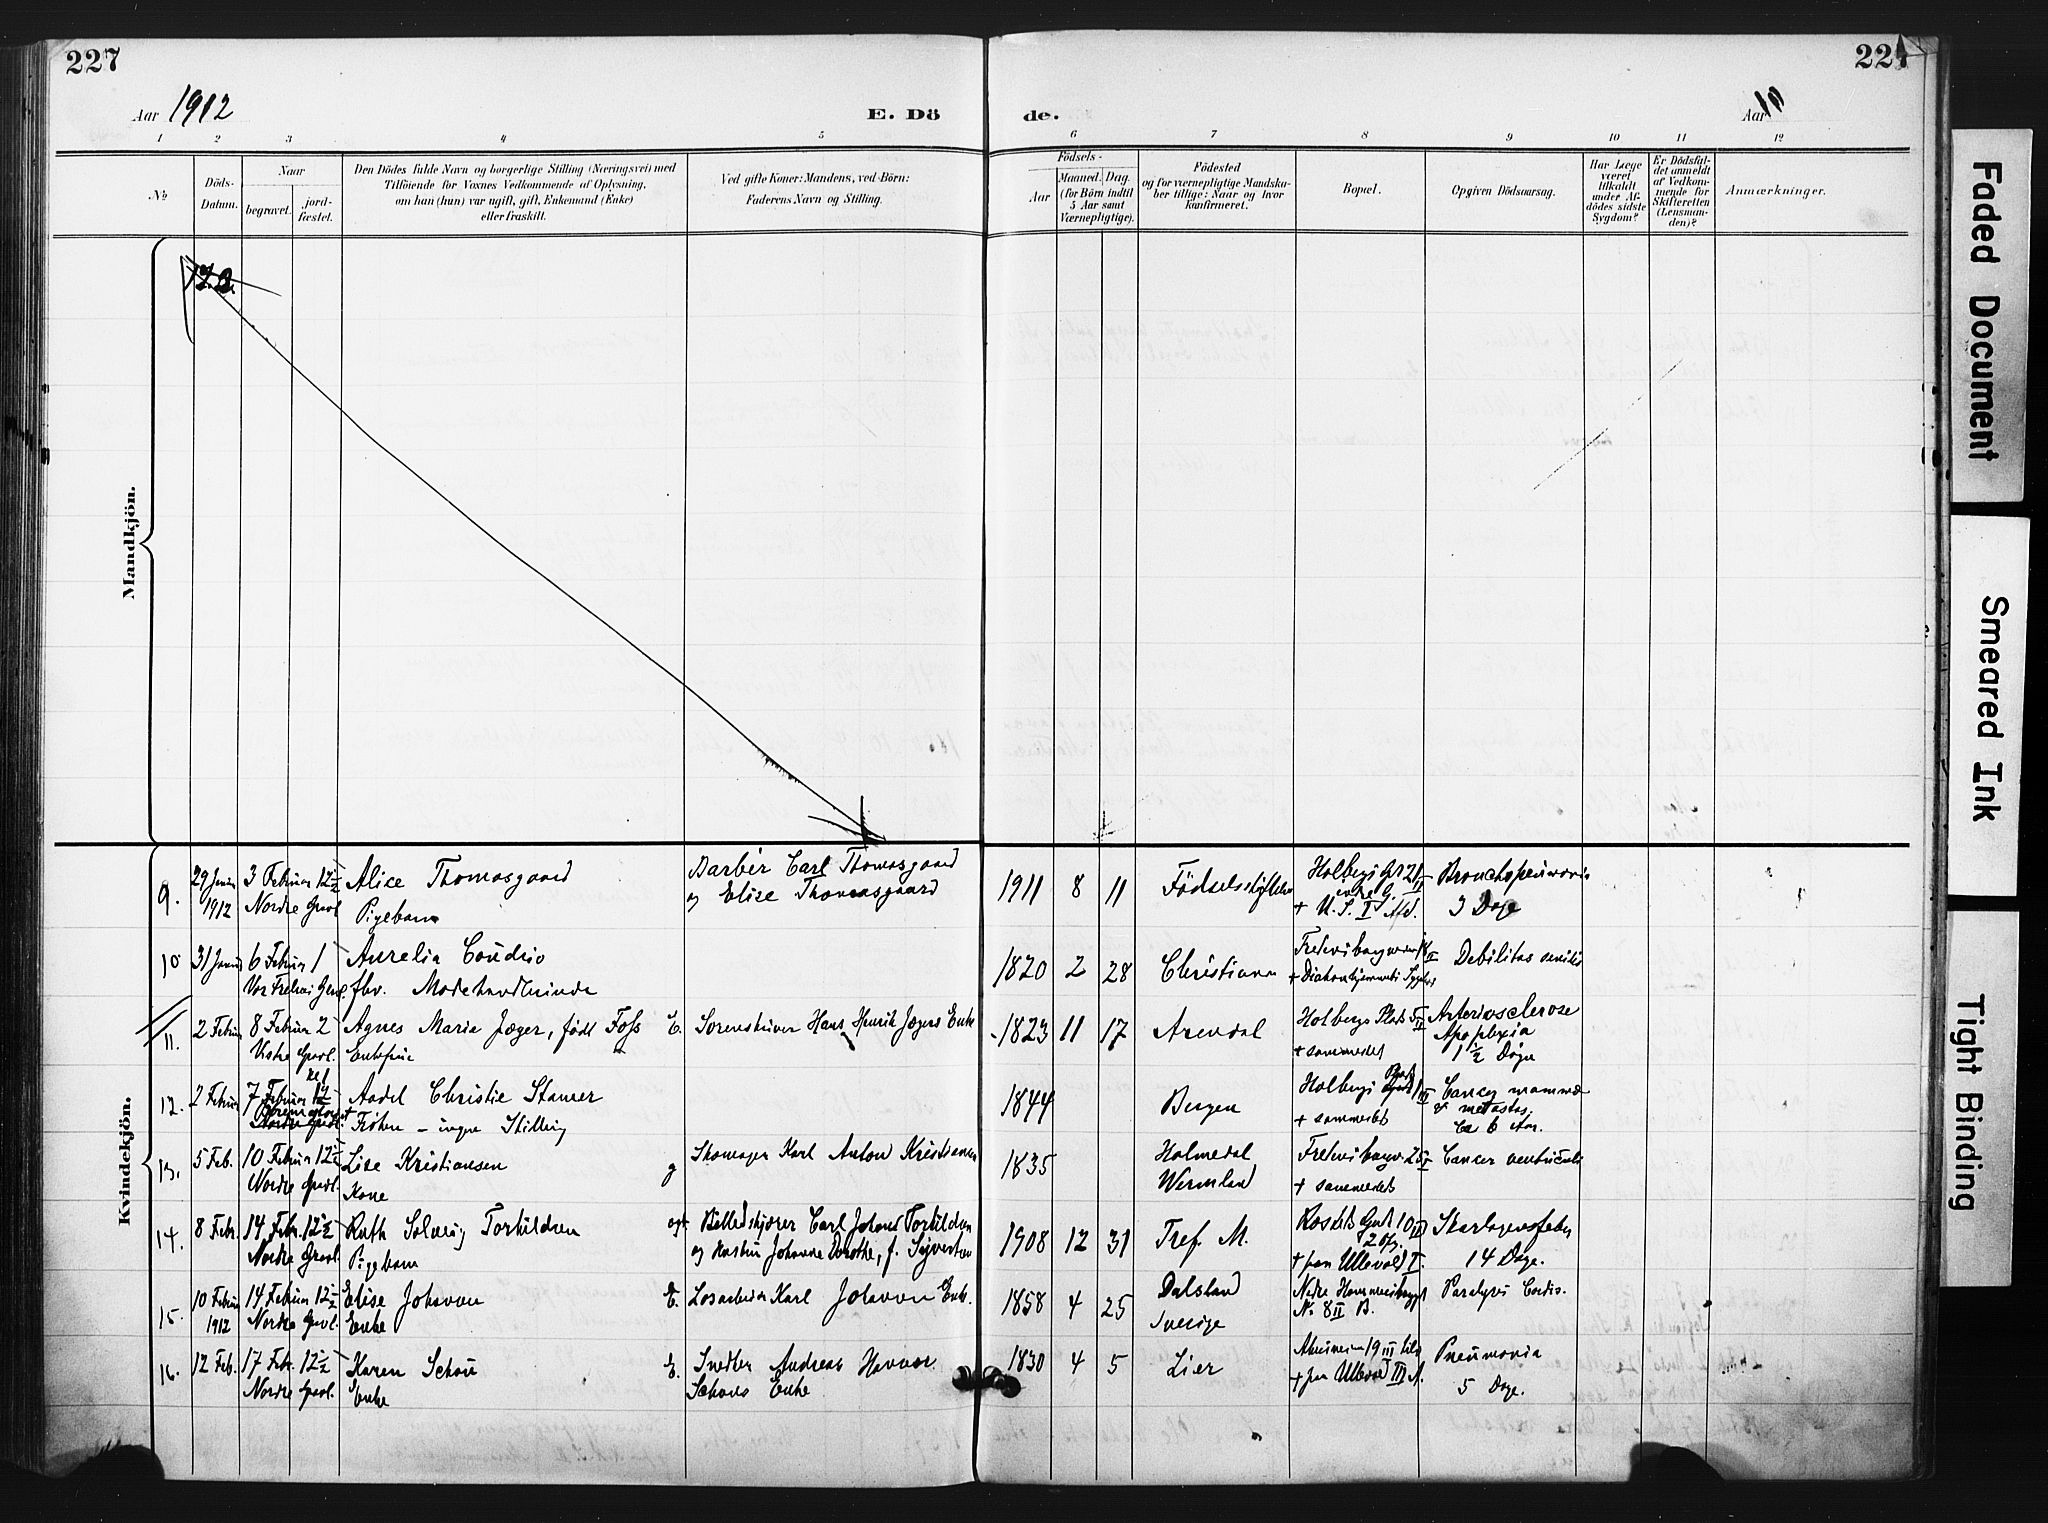 227
227
Aar 1912
E. Dö
de.
Aar
1
2
3
4
5
6
7
8
9
10
11
12
No
Döds-Datum.
Naar
begravet.
jord-fæstet.
Den Dödes fulde Navn og borgerlige Stilling (Næringsvei) med
Tilföiende for Voxnes Vedkommende af Oplysning,
om han (hun) var ugift, gift, Enkemand (Enke)
eller fraskilt.
Ved gifte Koner: Mandens, ved Börn:
Faderens Navn og Stilling.
Födsels-
Aar
Maaned.
Dag.
(for Börn indtil
5 Aar samt
Værnepligtige).
Födested
og for værnepligtige Mandska-
ber tillige: Naar og hvor
konfirmeret.
Bopæl.
Opgiven Dödsaarsag.
Har Læge
været
tilkaldt
under Af-
dödes sidste
Sygdom?
Er Dödsfal-
det anmeldt
af Vedkom-
mende for
Skifteretten
(Lensman-
den)?
Anmærkninger.
Mandkjön.
Kvindekjön.
9. 29 1912 3 Februar 12½ Nordre Gravl.
Alice Thomasgaard
Pigebarn
Barbér Carl Thomasgaard
og Elise Thomasgaard
1911 8 11
Födselsstiftelsen
Holbergs Gt 21 II
+ U. S. I Afd.
Bronchopneumonia
3 Dage
10 31 Januar 6 Februar 1
Vor Frelsers Gravl.
Aurelia
fhv. Modehandlerinde
1820 2 28
Christiania
Debilitas senilis
11. 2 Februar 8 Februar 2
Vestre Gravl.
Agnes Maria Jæger, født Foss
Enkefrue
E. Sorenskriver Hans Henrik Jægers Enke
1823 11 17
Arendal
Holbergs Plads 5 II
+ sammesteds
Arteriosclerose
Apoplexia
1½ Døgn
12. 2 Februar 7 Februar
Nordre Gravl.
Aadel Christie Stamer
Frøken – ingen Stilling
1844
Bergen
Holbergs Plads 1 III
+ sammesteds
Cancer mammæ
& metastas.
Ca 6 Aar.
13. 5 Feb. 10 Februar 12½
Nordre Gravl.
Lise Kristiansen
Kone
g Skomager Karl Anton Kristiansen
1835
Holmedal
Wermland
+ sammesteds
Cancer ventriculi
14. 8 Febr. 14 Febr. 12½
Nordre Gravl.
Ruth Solveig Torkildsen
Pigebarn
egt Billedskjærer Carl Johan Torkildsen
og Hustru Johanne Dorothe, f. Syvertsen
1908 12 31
Tref. M.
Rosteds Gad 10 II
2 Opg.
+ paa Ullevold I.
Skarlagensfeber
14 Dage.
15. 10 Februar 1912 14 Februar 12½
Nordre Gravl.
Elise Johnson
Enke
E. Løsarbeider Karl Johnson Enke.
1858 4 25
Dalsland
Sverige
No 8 II B.
Paralysis Cordis.
16. 12 Feb. 17 Febr. 12½
Nordre Gravl.
Karen Schou
Enke
E. Snedker Andreas
Schous Enke
1830 4 5
Lier
19 III
+ paa Ullevold III A.
Pneumonia
5 Dage.
Faded Document
Smeared Ink
Tight Binding